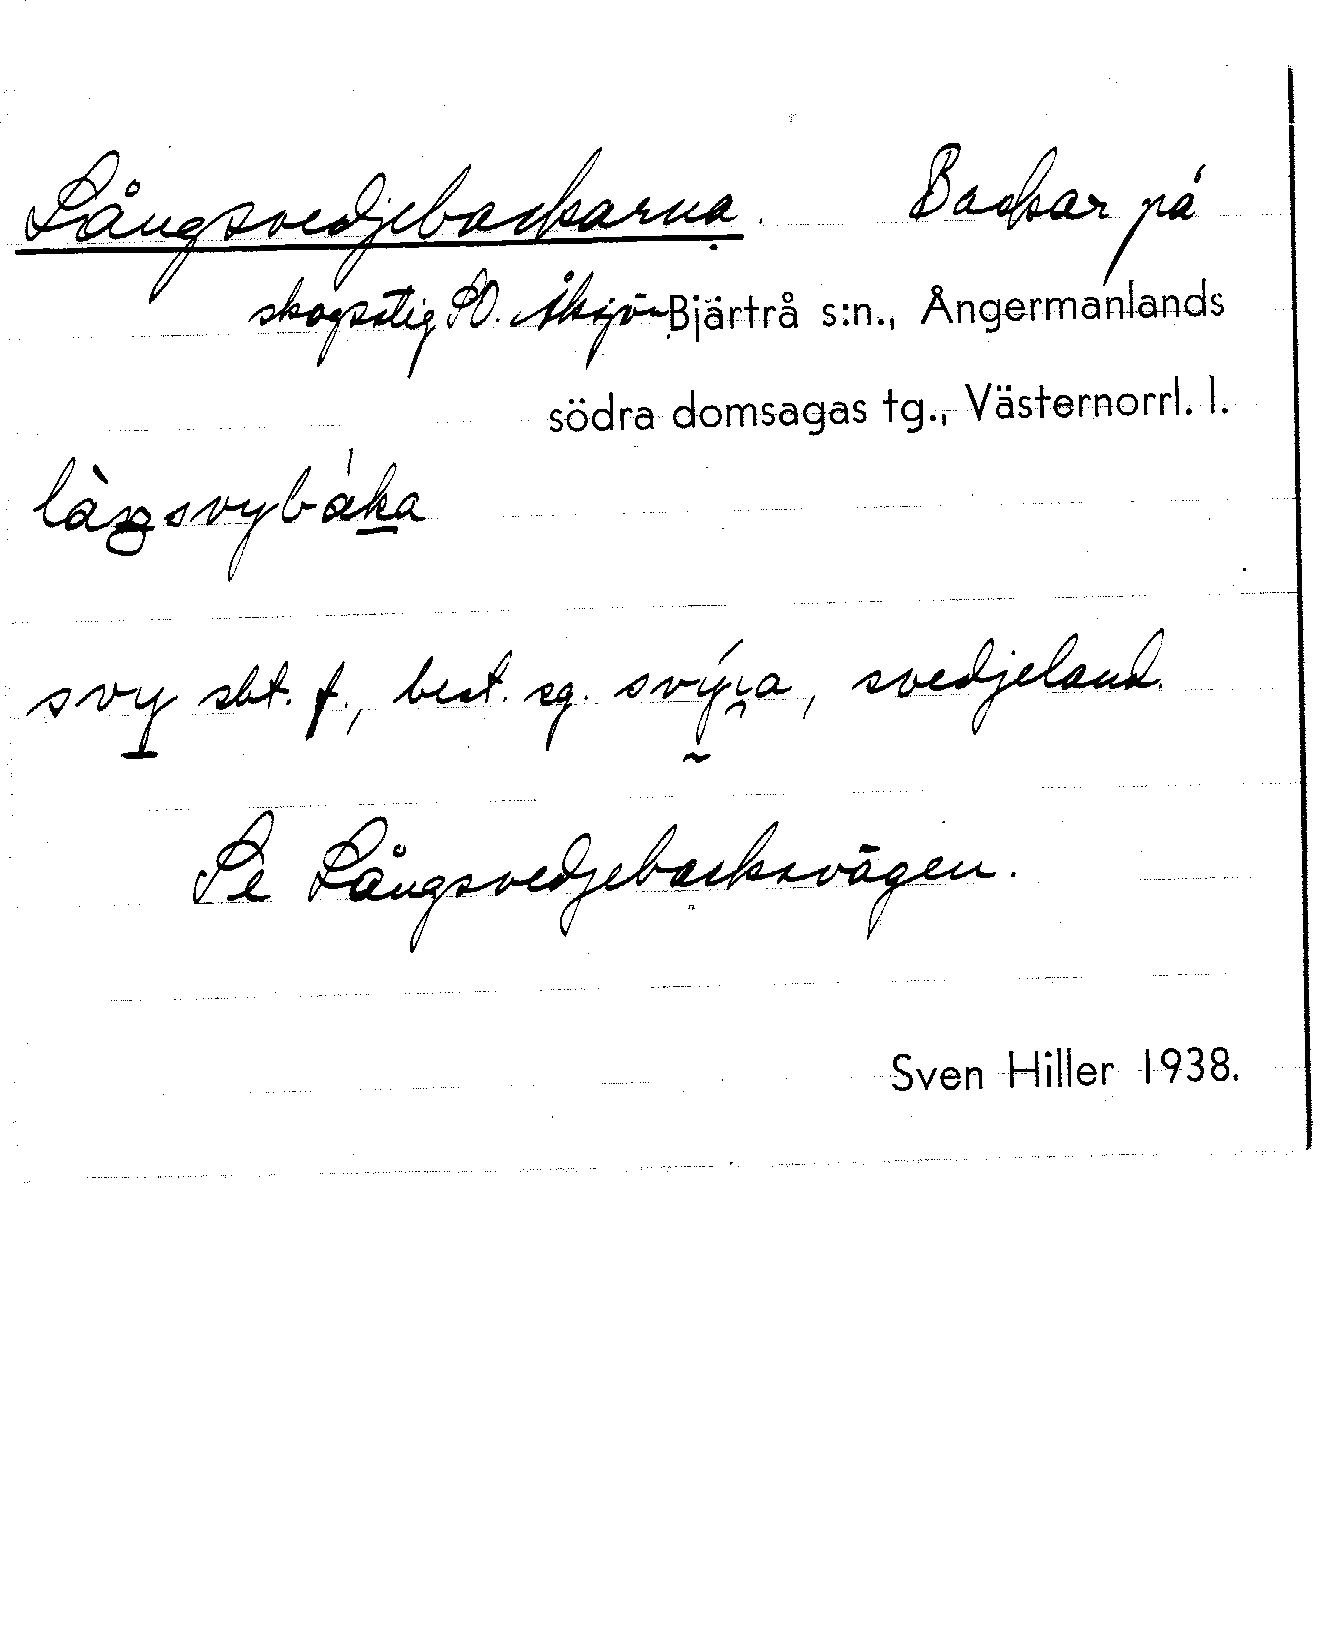 Långsvedjebackarna. Backar på
skogsstig SO. Åksjön Bjärtrå s:n., Ångermanlands
södra domsagas tg., Västernorrl. l.
svy sbt. f., best. sg. svýɩa, svedjeland.
Se Långsvedjebacksvägen.
Sven Hiller 1938.